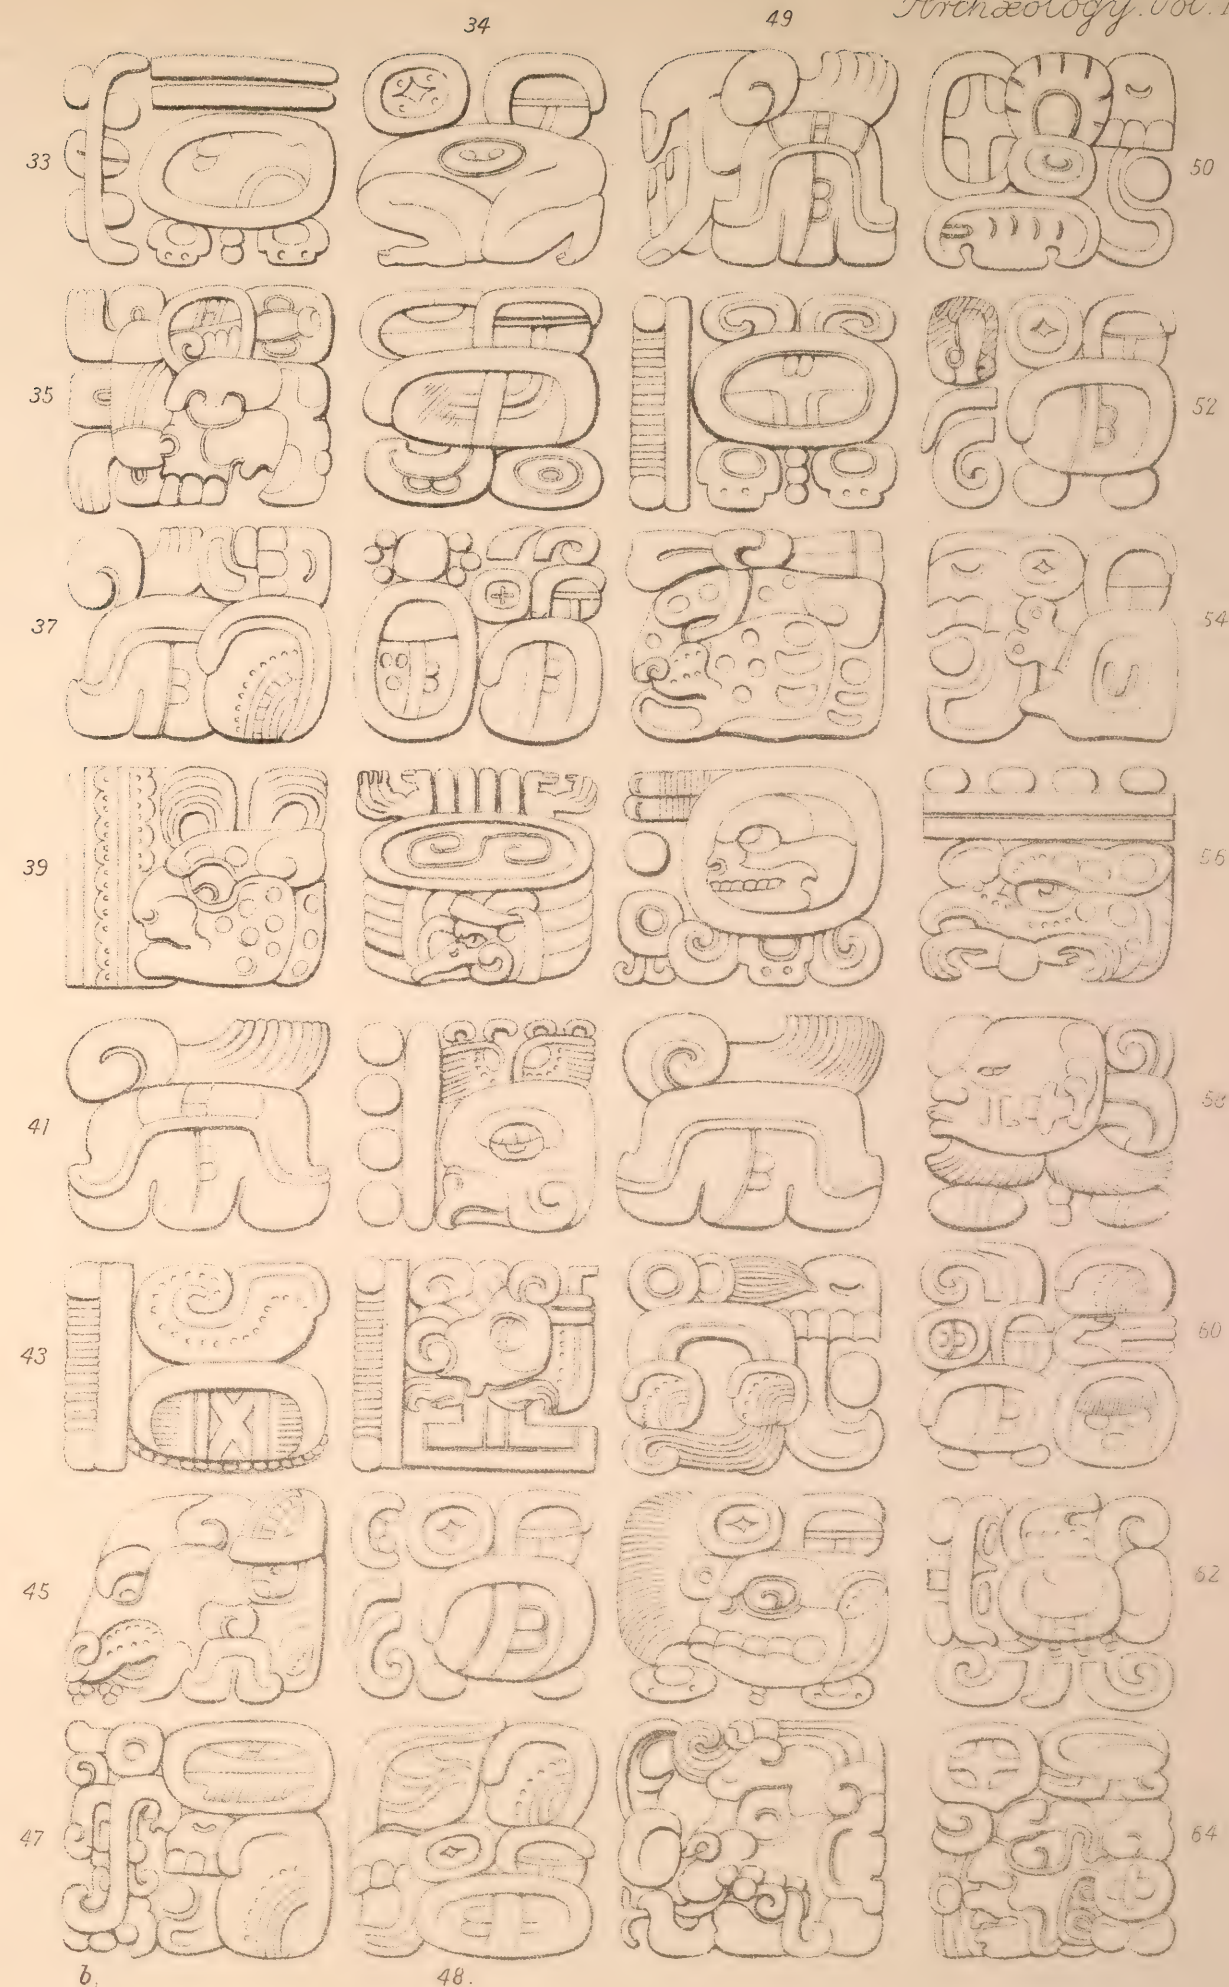 Archæology. Vol.
34 49
33 50
35 52
37 54
39 56
41 58
43 60
45 62
47 64
b. 48.